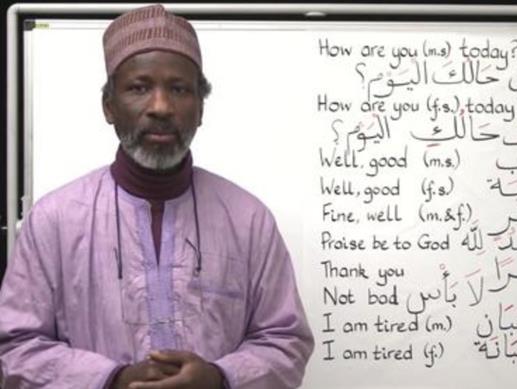 How are you (m.s) today?
حَالُكَ الْيَوْم؟
How are you (f.s.) today
حَالُكِ الْيَوْم؟
Well, good (m.s.)
Well, good (f.s.)
Fine, well (m.&f.)
Praise be to God لِلَّه
Thank you
Not bad لَا بَأْس
I am tired (m.)
I am tired (f.)